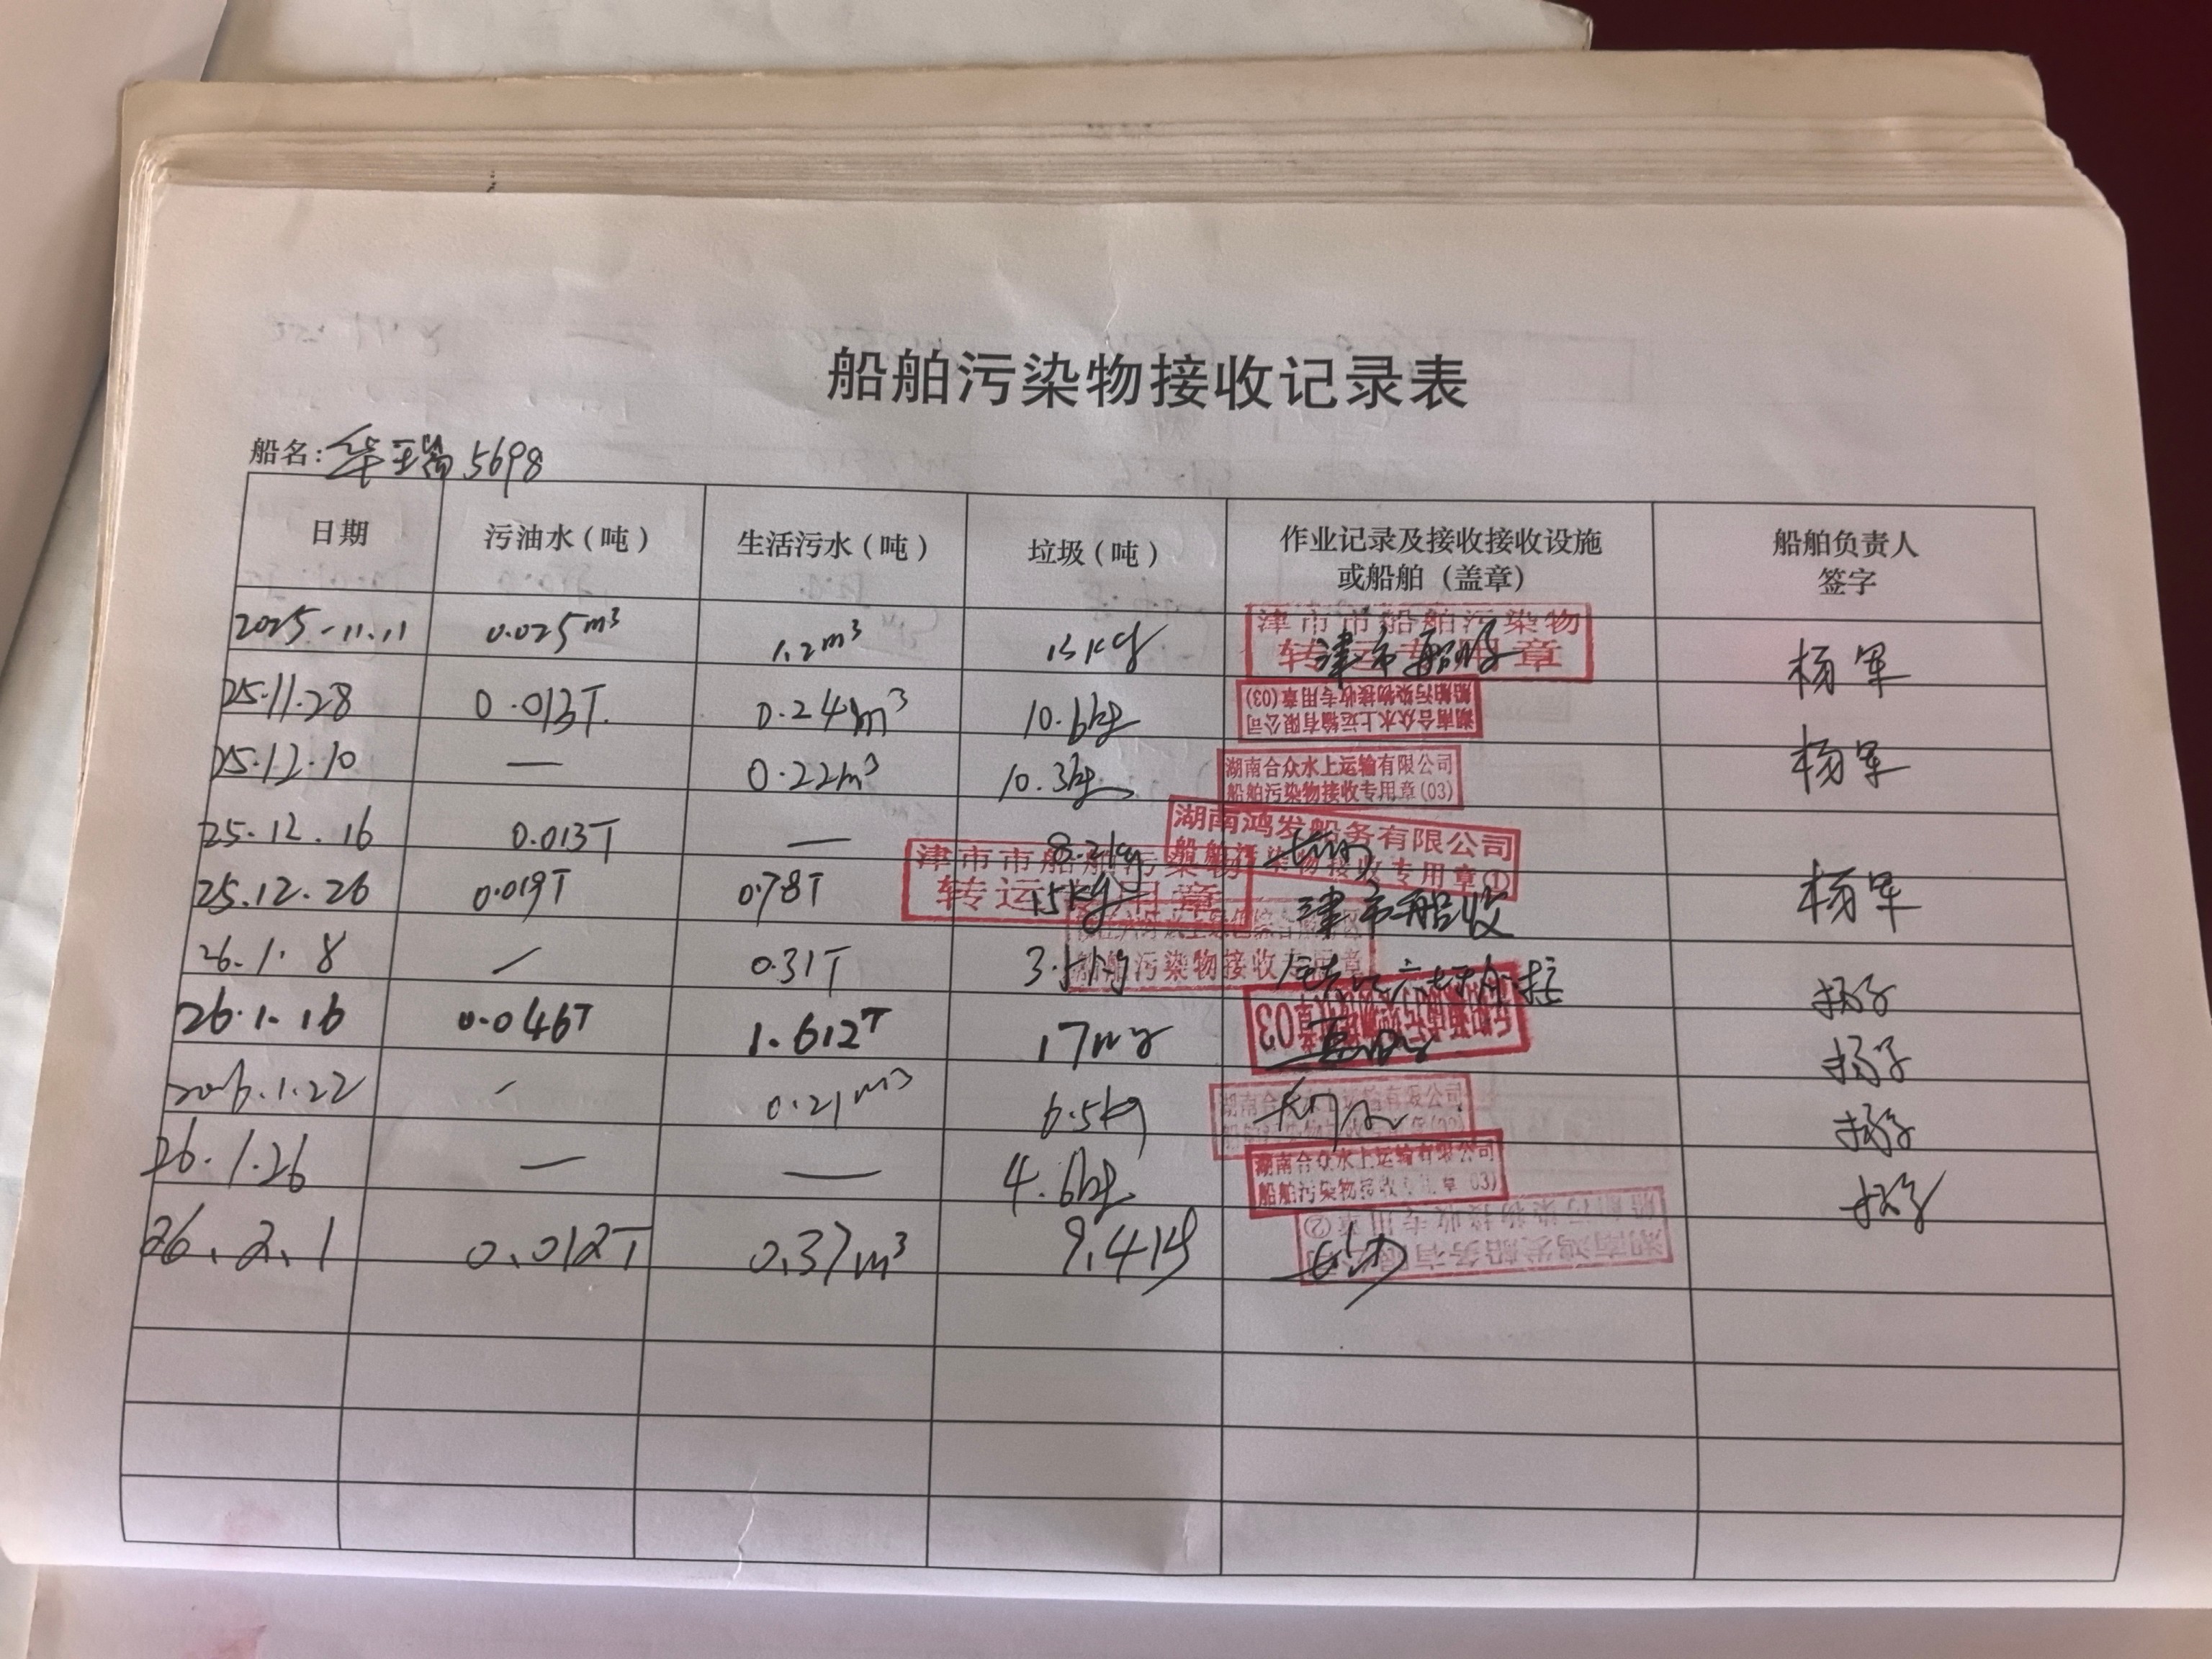 船舶污染物接收记录表
船名: 华玉瑞 5698
日期 污油水（吨） 生活污水（吨） 垃圾（吨） 作业记录及接收接收设施 船舶负责人
或船舶（盖章） 签字
2025.11.11 0.025m³ 1.2m³ 13kg 津市市船舶污染物 杨军
转运专用章 津市船
25.11.28 0.013T 0.24m³ 10.6kg 湖南合众水上运输有限公司 杨军
船舶污染物接收专用章(03)
25.12.10 — 0.22m³ 10.3kg 湖南合众水上运输有限公司
船舶污染物接收专用章(03)
25.12.16 0.013T — 8.2kg 湖南鸿发船务有限公司 杨军
船舶污染物接收专用章①
25.12.26 0.019T 0.78T 15kg 津市市船舶污染物 津市船收
转运专用章
26.1.8 / 0.31T 船舶污染物接收专用章
26.1.16 0.046T 1.612T 17 03
2026.1.22 / 0.21m³ 6.5kg 湖南合众水上运输有限公司
26.1.26 — — 4.6kg 湖南合众水上运输有限公司
船舶污染物接收专用章(03)
26.2.1 0.012T 0.37m³ 9.4kg 湖南鸿发船务有限公司
船舶污染物接收专用章②